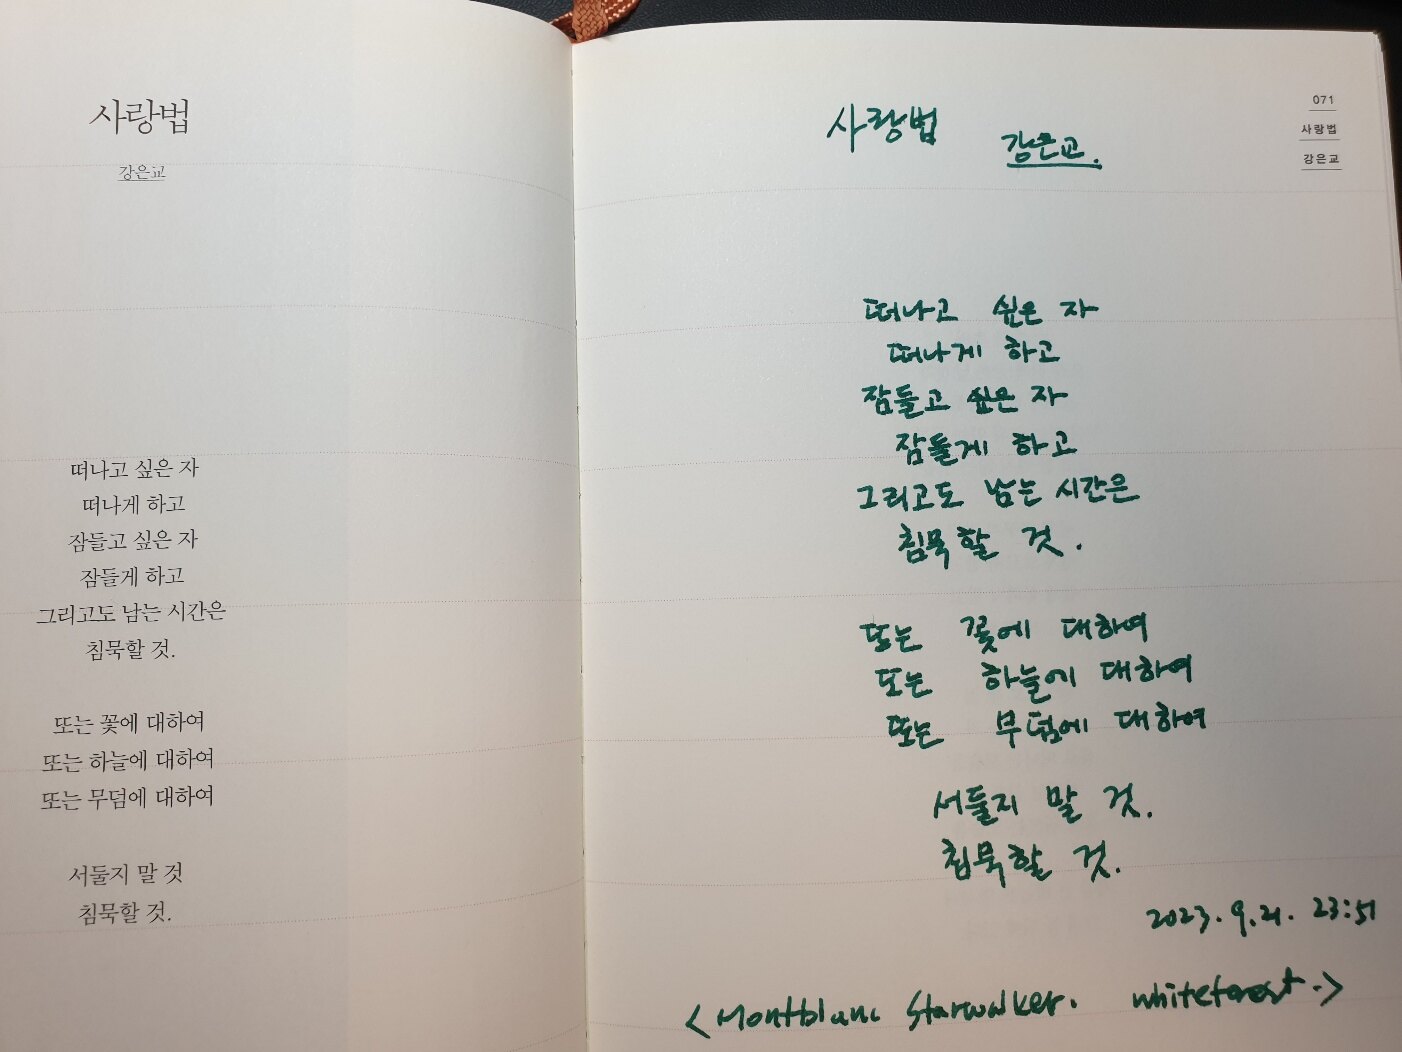 사랑법
강은교
떠나고 싶은 자
떠나게 하고
잠들고 싶은 자
잠들게 하고
그리고도 남는 시간은
침묵할 것.
또는 꽃에 대하여
또는 하늘에 대하여
또는 무덤에 대하여
서둘지 말 것
침묵할 것.
071
사랑법
강은교
사랑법
강은교.
떠나고 싶은 자
떠나게 하고
잠들고 싶은 자
잠들게 하고
그리고도 남는 시간은
침묵할 것.
또는 꽃에 대하여
또는 하늘에 대하여
또는 무덤에 대하여
서둘지 말 것.
침묵할 것.
2023. 9. 21. 23:51
<Montblanc Starwalker. whiteforest.>